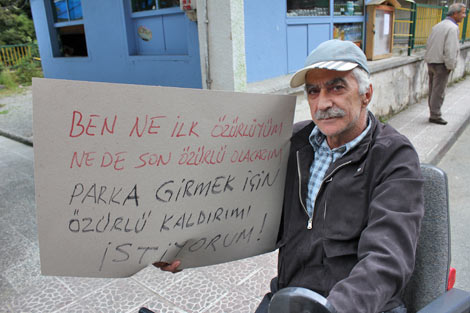 BEN NE İLK ÖZÜRLÜYÜM
NE DE SON ÖZÜRLÜ OLACAĞIM
PARKA GİRMEK İÇİN
ÖZÜRLÜ KALDIRIMI
İSTİYORUM!